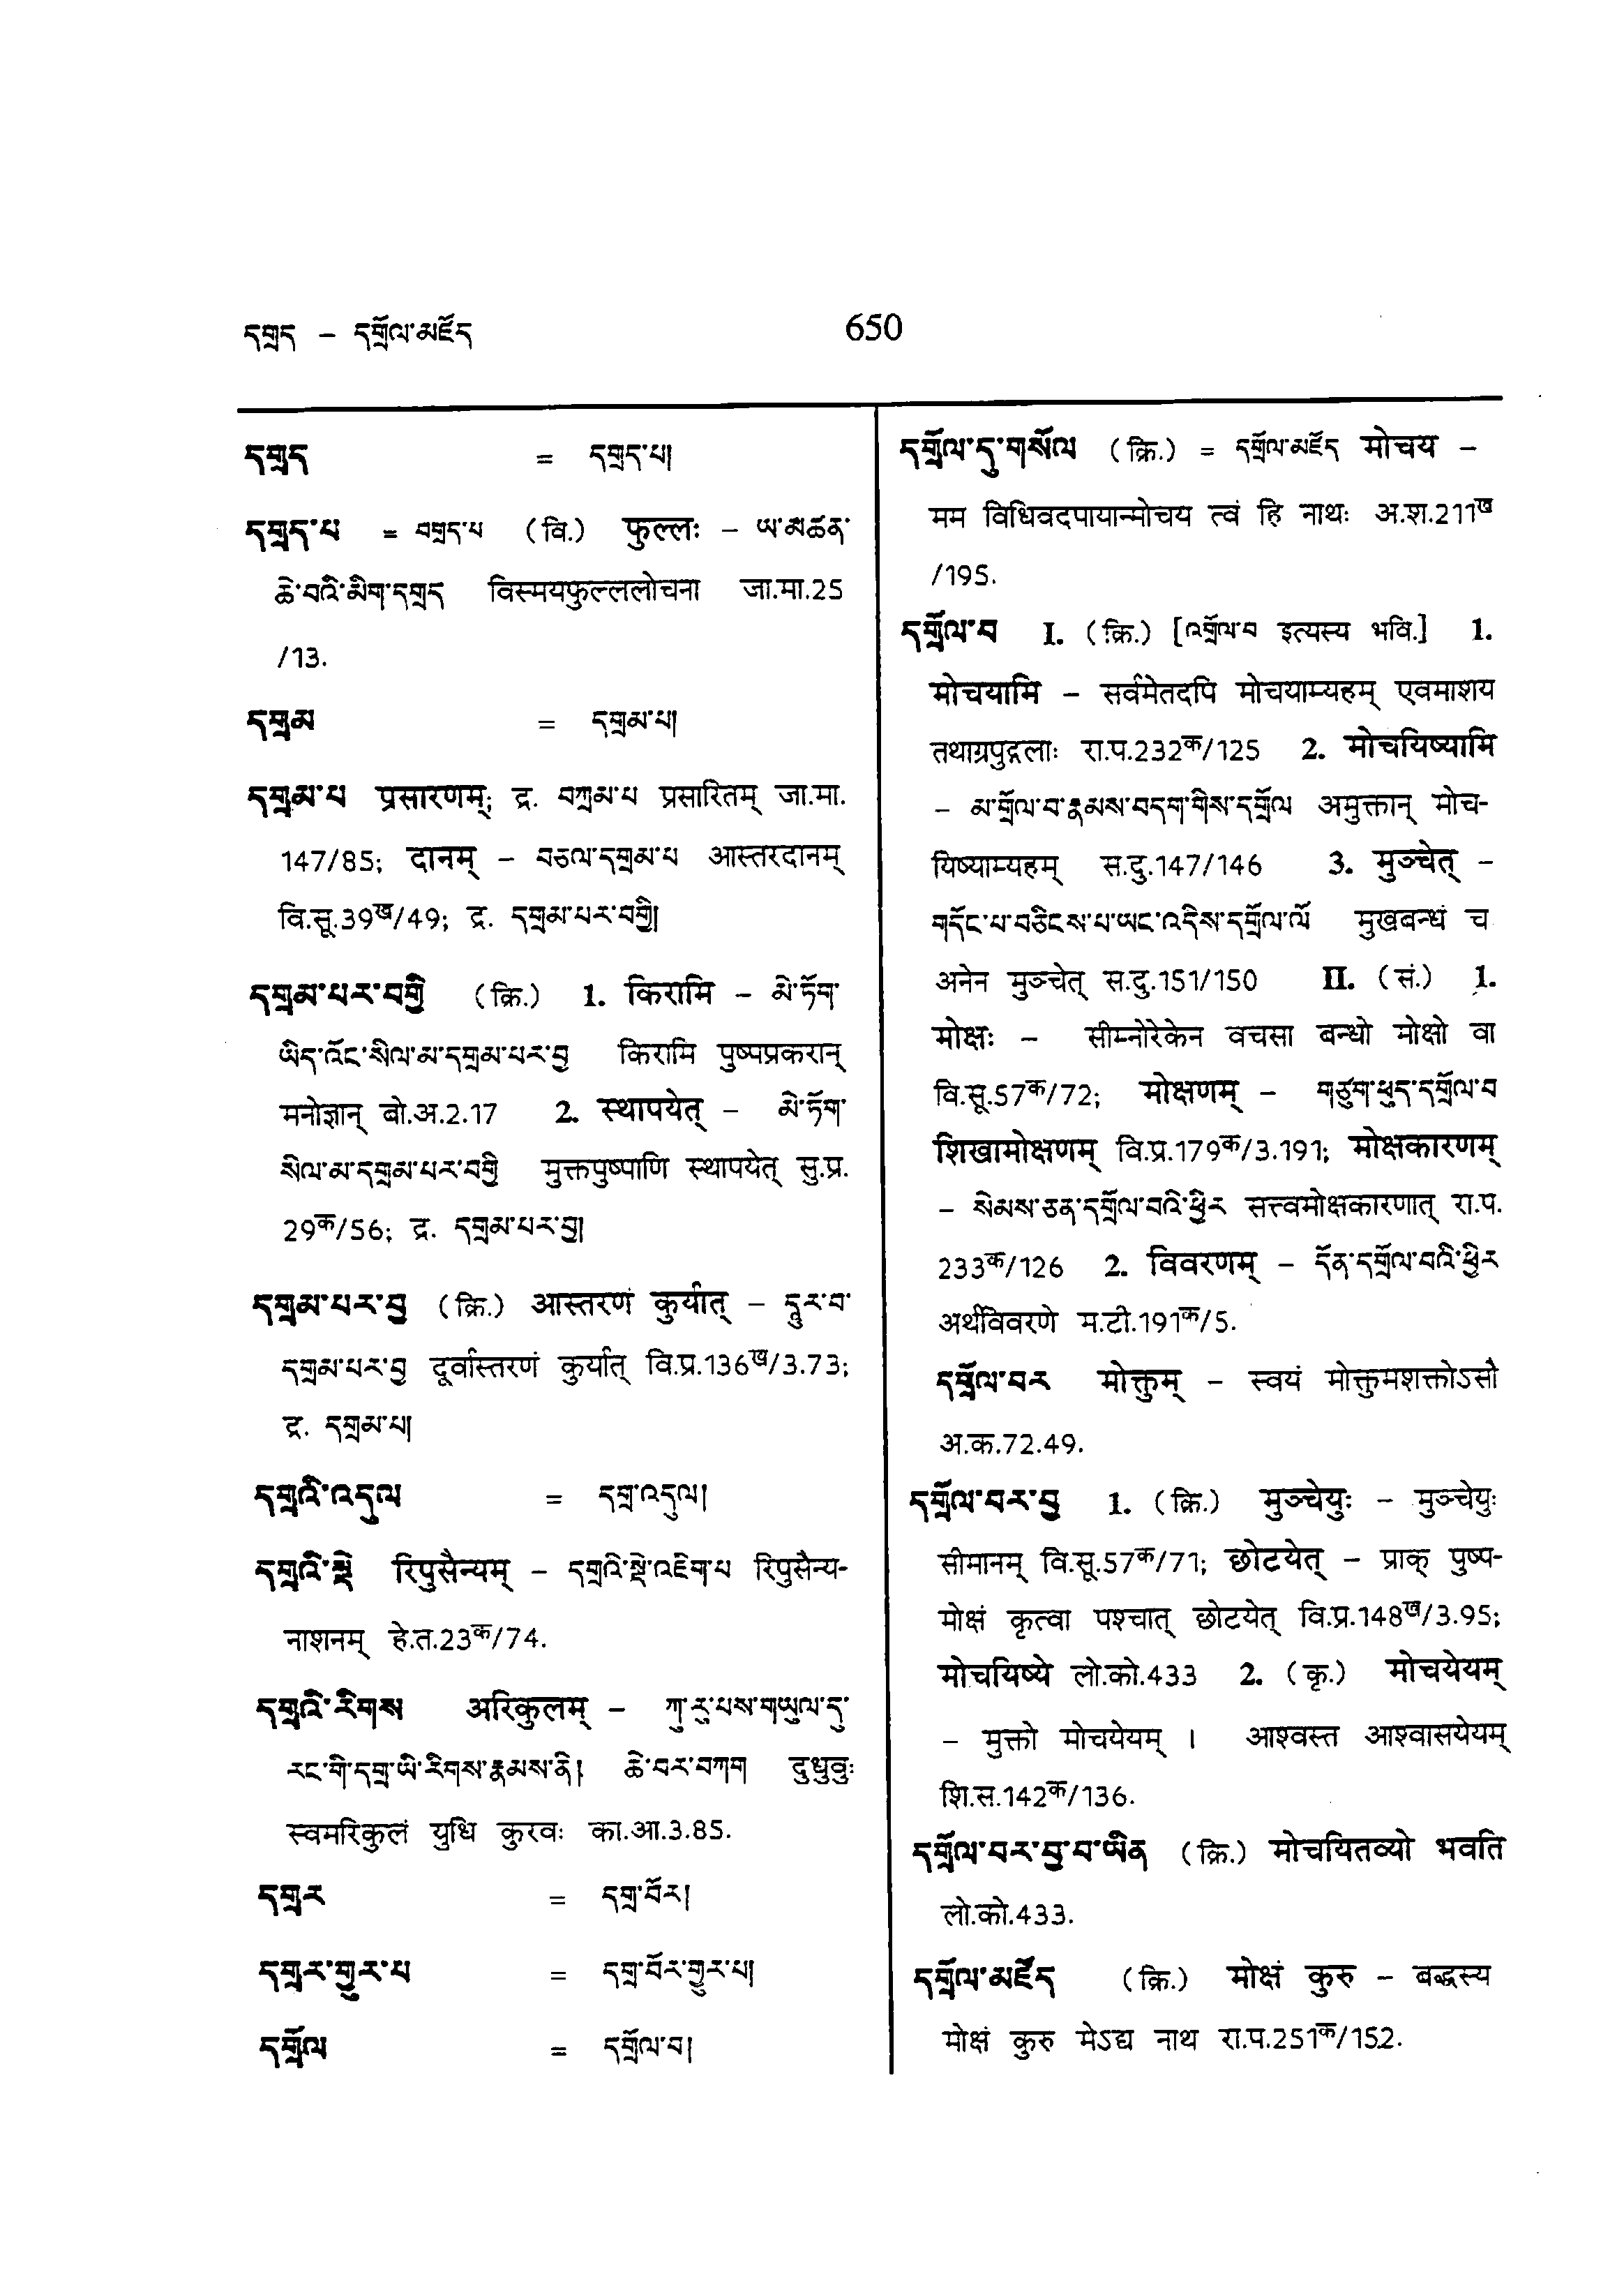 དགྲད – དགྲོལ་མཛོད
650
དགྲད = དགྲད་པ།
དགྲད་པ = བགྲད་པ (वि.) फुल्लः – ཡ་མཚན་
ཆེ་བའི་མིག་དགྲད विस्मयफुल्ललोचना जा.मा.25
/13.
དགྲམ = དགྲམ་པ།
དགྲམ་པ प्रसारणम्; द्र. བཀྲམ་པ प्रसारितम् जा.मा.
147/85; दानम् – བཅལ་དགྲམ་པ आस्तरदानम्
वि.सू.39ख/49; द्र. དགྲམ་པར་བགྱི།
དགྲམ་པར་བགྱི (क्रि.) 1. किरामि – མེ་ཏོག་
ཡིད་འོང་སིལ་མ་དགྲམ་པར་བྱ किरामि पुष्पप्रकरान्
मनोज्ञान् बो.अ.2.17 2. स्थापयेत् – མེ་ཏོག་
སིལ་མ་དགྲམ་པར་བགྱི मुक्तपुष्पाणि स्थापयेत् सु.प्र.
29क/56; द्र. དགྲམ་པར་བྱ།
དགྲམ་པར་བྱ (क्रि.) आस्तरणं कुर्यात् – དཱུར་བ་
དགྲམ་པར་བྱ दूर्वास्तरणं कुर्यात् वि.प्र.136ख/3.73;
द्र. དགྲམ་པ།
དགྲའི་འདུལ = དགྲ་འདུལ།
དགྲའི་སྡེ रिपुसैन्यम् – དགྲའི་སྡེ་འཇིག་པ रिपुसैन्य-
नाशनम् हे.त.23क/74.
དགྲའི་རིགས अरिकुलम् – ཀུ་རུ་པས་གཡུལ་དུ་
རང་གི་དགྲ་ཡི་རིགས་རྣམས་ནི། ཆེ་བར་བཀག दुधुवुः
स्वमरिकुलं युधि कुरवः का.आ.3.85.
དགྲར = དགྲ་བོར།
དགྲར་གྱུར་པ = དགྲ་བོར་གྱུར་པ།
དགྲོལ = དགྲོལ་བ།
དགྲོལ་དུ་གསོལ (क्रि.) = དགྲོལ་མཛོད मोचय –
मम विधिवदपायान्मोचय त्वं हि नाथः अ.श.211ख
/195.
དགྲོལ་བ I. (क्रि.) [འགྲོལ་བ इत्यस्य भवि.] 1.
मोचयामि – सर्वमेतदपि मोचयाम्यहम् एवमाशय
तथाग्रपुद्गलाः रा.प.232क/125 2. मोचयिष्यामि
– མ་གྲོལ་བ་རྣམས་བདག་གིས་དགྲོལ अमुक्तान् मोच-
यिष्याम्यहम् स.दु.147/146 3. मुञ्चेत् –
གདོང་པ་བཅིངས་པ་ཡང་འདིས་དགྲོལ་ལོ मुखबन्धं च
अनेन मुञ्चेत् स.दु.151/150 II. (सं.) 1.
मोक्षः – सीम्नोरेकेन वचसा बन्धो मोक्षो वा
वि.सू.57क/72; मोक्षणम् – གཙུག་ཕུད་དགྲོལ་བ
शिखामोक्षणम् वि.प्र.179क/3.191; मोक्षकारणम्
– སེམས་ཅན་དགྲོལ་བའི་ཕྱིར सत्त्वमोक्षकारणात् रा.प.
233क/126 2. विवरणम् – དོན་དགྲོལ་བའི་ཕྱིར
अर्थविवरणे म.टी.191क/5.
དགྲོལ་བར मोक्तुम् – स्वयं मोक्तुमशक्तोऽसौ
अ.क.72.49.
དགྲོལ་བར་བྱ 1. (क्रि.) मुञ्चेयुः – मुञ्चेयुः
सीमानम् वि.सू.57क/71; छोटयेत् – प्राक् पुष्प-
मोक्षं कृत्वा पश्चात् छोटयेत् वि.प्र.148ख/3.95;
मोचयिष्ये लो.को.433 2. (कृ.) मोचयेयम्
– मुक्तो मोचयेयम् । आश्वस्त आश्वासयेयम्
शि.स.142क/136.
དགྲོལ་བར་བྱ་བ་ཡིན (क्रि.) मोचयितव्यो भवति
लो.को.433.
དགྲོལ་མཛོད (क्रि.) मोक्षं कुरु – बद्धस्य
मोक्षं कुरु मेऽद्य नाथ रा.प.251क/152.